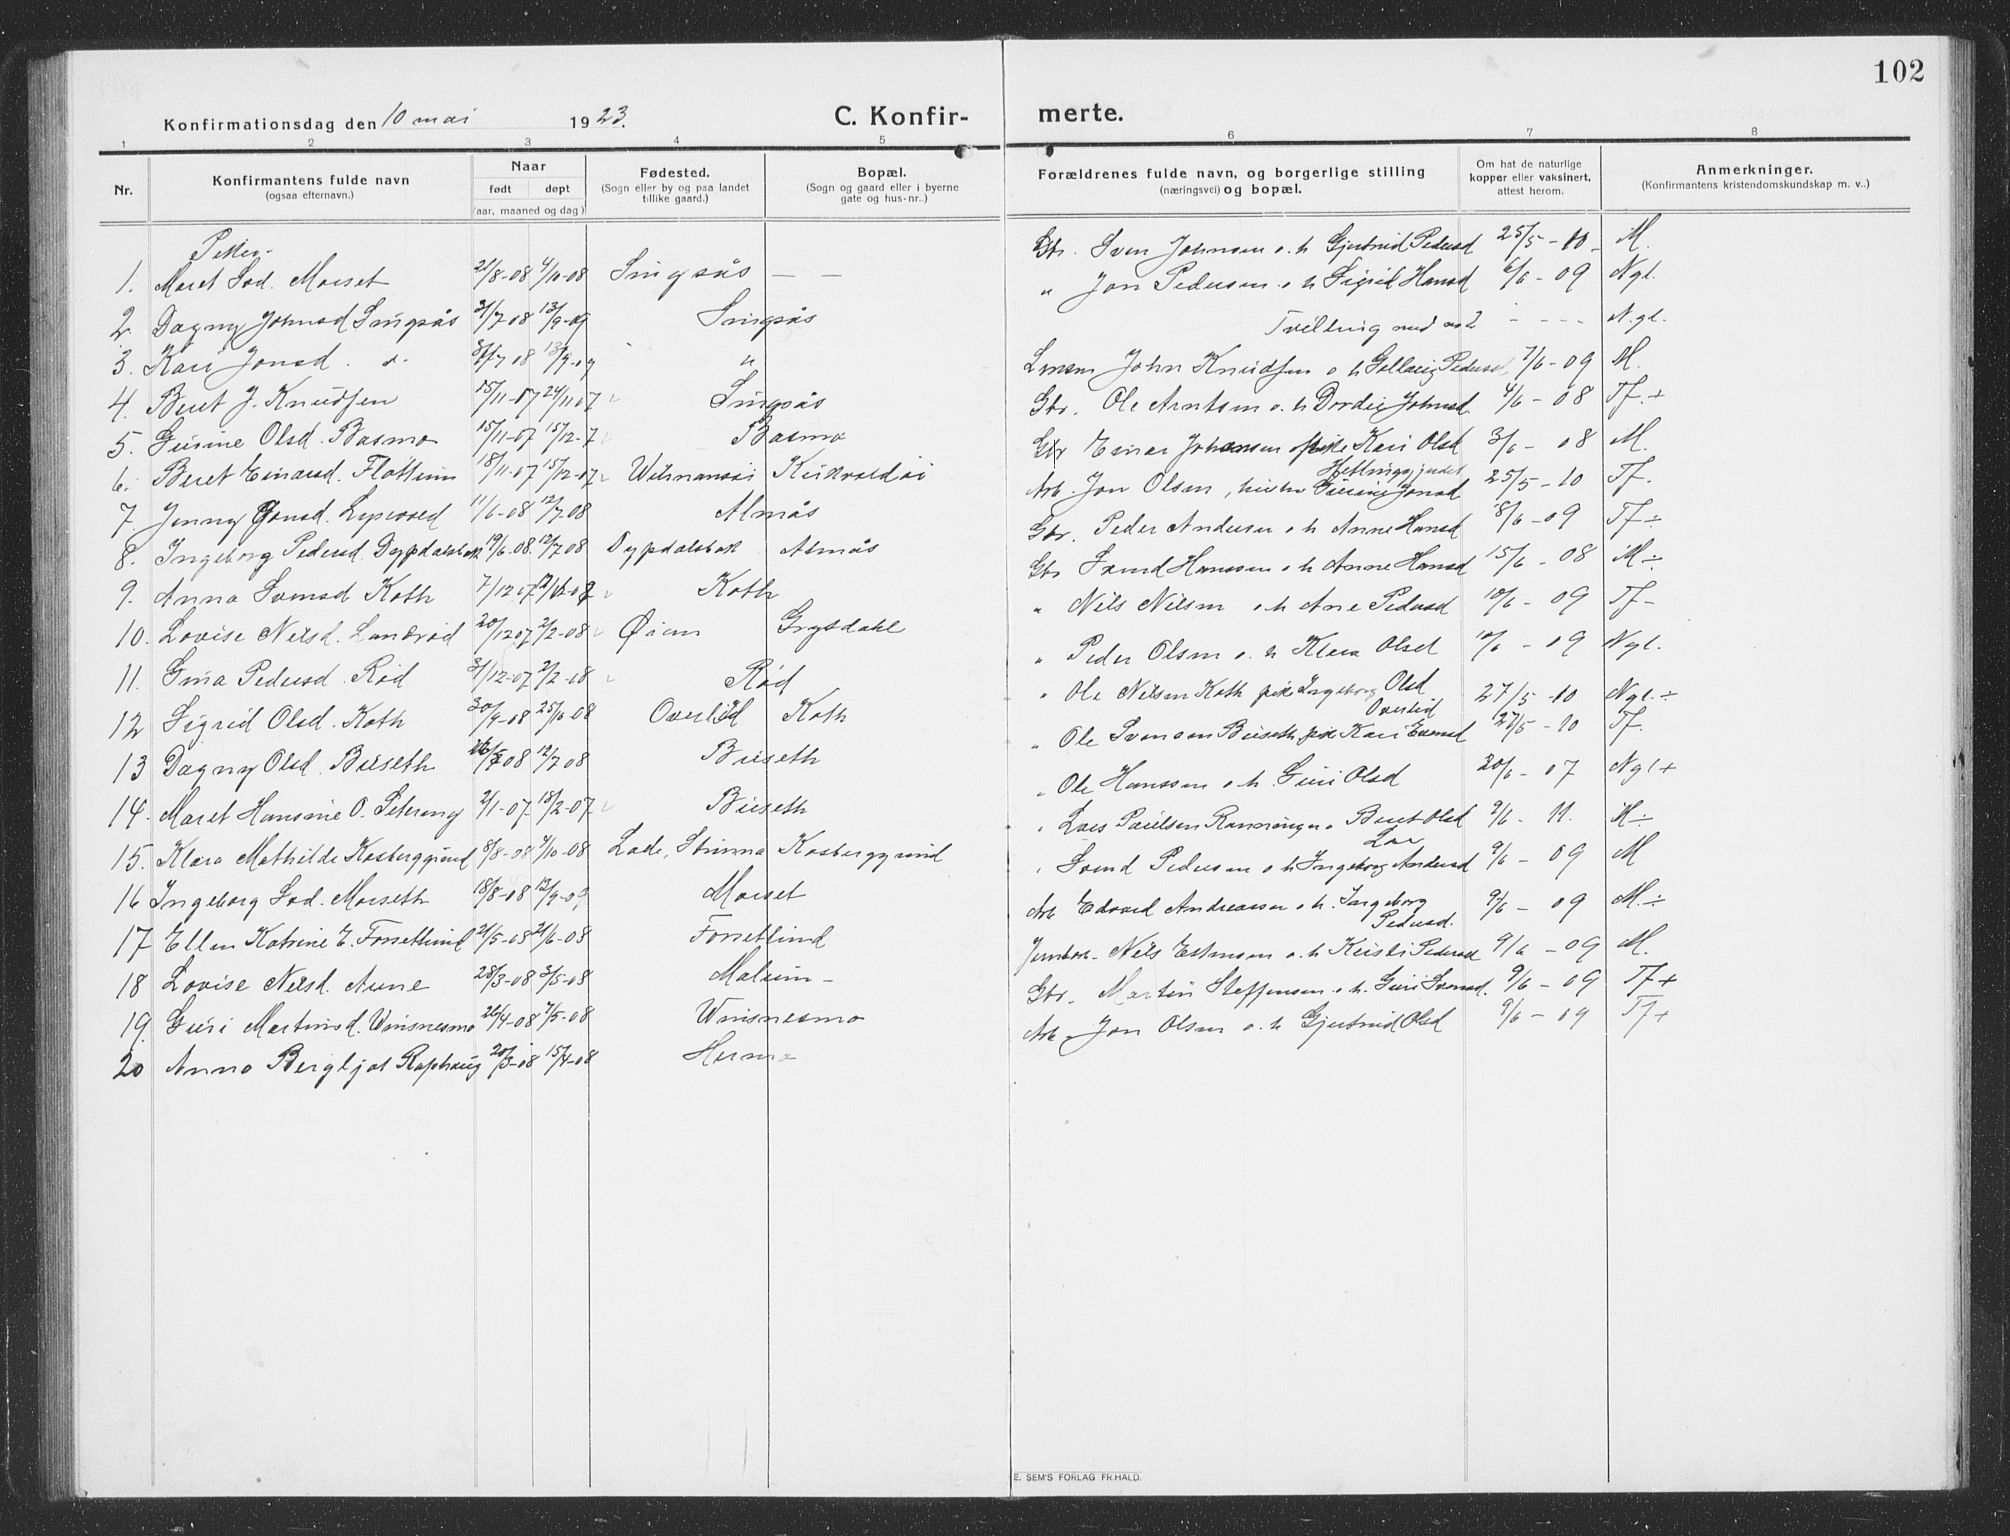 102
Konfirmationsdag den 10 mai 1923.
C. Konfir-
merte.
1 2 3 4 5 6 7 8
Nr.
Konfirmantens fulde navn
(ogsaa efternavn.)
Naar
født døpt
(aar, maaned og dag)
Fødested.
(Sogn eller by og paa landet
tillike gaard.)
Bopæl.
(Sogn og gaard eller i byerne
gate og hus-nr..)
Forældrenes fulde navn, og borgerlige stilling
(næringsvei) og bopæl.
Om hat de naturlige
kopper eller vaksinert,
attest herom.
Anmerkninger.
(Konfirmantens kristendomskundskap m. v..)
Piker.
1. Maret Sod. Morset 21/8-08 4/10-08 Singsås — — Gbr. Sven Johnsen o. h Gjertrud Pedersd 25/5-10- M.
2 Dagny Johnsd Singsås 31/7-08 13/9-09 Singsås " Jon Pedersen o h Sigrid Hansd 6/6-09 Ngl.
3. Kari Jonsd. 31/7 08 13/9-09 " Tvilling med no 2 - - - - N.gl.
4. Beret J. Knudsen 15/11-07 24/11 07 Singsås John Knudsen o h Pedersd 7/6-09 M.
5. Gurine Olsd. Basmo 15/11-07 15/12-7 Basmo Gbr. Ole Arntsen o. h Dordie Johnsd. 4/6-08 Tf.+
6. Beret Einarsd. Flottum 18/11-07 15/12-07 Kirkvoldøi Gbr Einar Johansen Kari Olsd 3/6-08 M.
7. Jenny Jonsd. 11/6-08 12/7-08 Almås Arb. Jon Olsen, Jonsd 25/5-10 Tf.
8. Ingeborg Pedersd. Dypdalsbak 19/6-08. 12/7 08 Dypdalsbak Almås Gbr. Peder Andersen o h Anne Hansd 8/6-09 Tf÷
9. Anna Svensd Koth 7/12 07 Koth Gbr Svend Hanssen o h Anne Hansd 15/6-08 M÷
10. Lovise Nilsd. Landrød 20/12 07 2/2-08 Øian Grytdahl " Nils Nilsen o h Ane Pedersd 10/6-09 Tf-
11. Gina Pedersd. Rød 31/12-07 2/2-08 Rød " Peder Olsen o. h Klara Olsd 10/6-09 Ngl.
12 Sigrid Olsd. Koth 30/9-08 25/10-08 Overlid Koth " Ole Nilsen Koth pike Ingeborg Olsd Overlid 27/5-10 Ngl.÷
13 Dagny Olsd. Buseth 08 12/7 08 Buseth " Ole Svensen Buseth pike Kari 27/5-10 Tf.
14. Maret Hansine O. Seterang 2/1-07 18/2-07 Buseth " Ole Hanssen o. h Guri Olsd 20/6-07 Ngl+
15. Klara Mathilde Kosberggrind 8/8-08 4/10-08 Lade, Strinna Kosberggrind " Lars Paulsen Beret Olsd 9/6-11. M÷
16 Ingeborg Sod. Morseth 18/8-08 13/9-09 Morset " Svend Pedersen o h Ingeborg Andersd 9/6-09 M
17 Ellen Katrine E. Forsetlund 21/5-08 21/6-08 Forsetlund Arb Edvard Andreassen o h. Ingeborg Pedersd. 9/6-09 M.÷
18 Lovise Nilsd. Aune 28/3-08 3/5-08 Malum- Jernbarb. Nils Estensen o. h Kirsti Pedersd 9/6-09 M.
19. Guri Martinsd. Winsnesmo 26/4-08 7/5-08 Winsnesmo Gbr. Martin Steffensen o. h. Guri Svensd. 9/6-09 Tf+
20 Anna Bergljot Rophaug 20/3-08 15/4-08 Arb. Jon Olsen o. h Gjertrud Olsd 9/6-09 Tf+
E. SEM'S FORLAG FR.HALD.